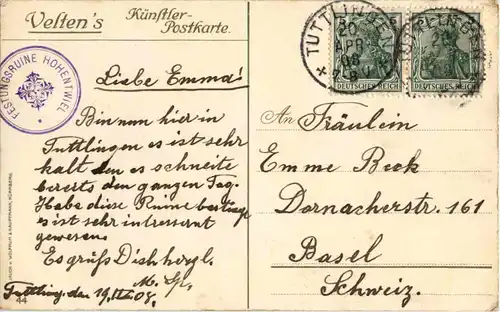 Velten's Künstler-
Postkarte.
FESTUNGSRUINE HOHENTWIEL
TUTTLINGEN
20
APR
08
7-8
DEUTSCHES REICH
DEUTSCHES REICH
Liebe Emma!
Bin nun hier in
Tuttlingen es ist sehr
kalt den es schneite
bereits den ganzen Tag.
Habe diese Ruine
es ist sehr interssant
gewesen.
Es grüß Dich herzl.
Tuttling. den 19. 08.
44
An Fräulein
Emme Beck
Dornacherstr. 161
Basel
Schweiz.